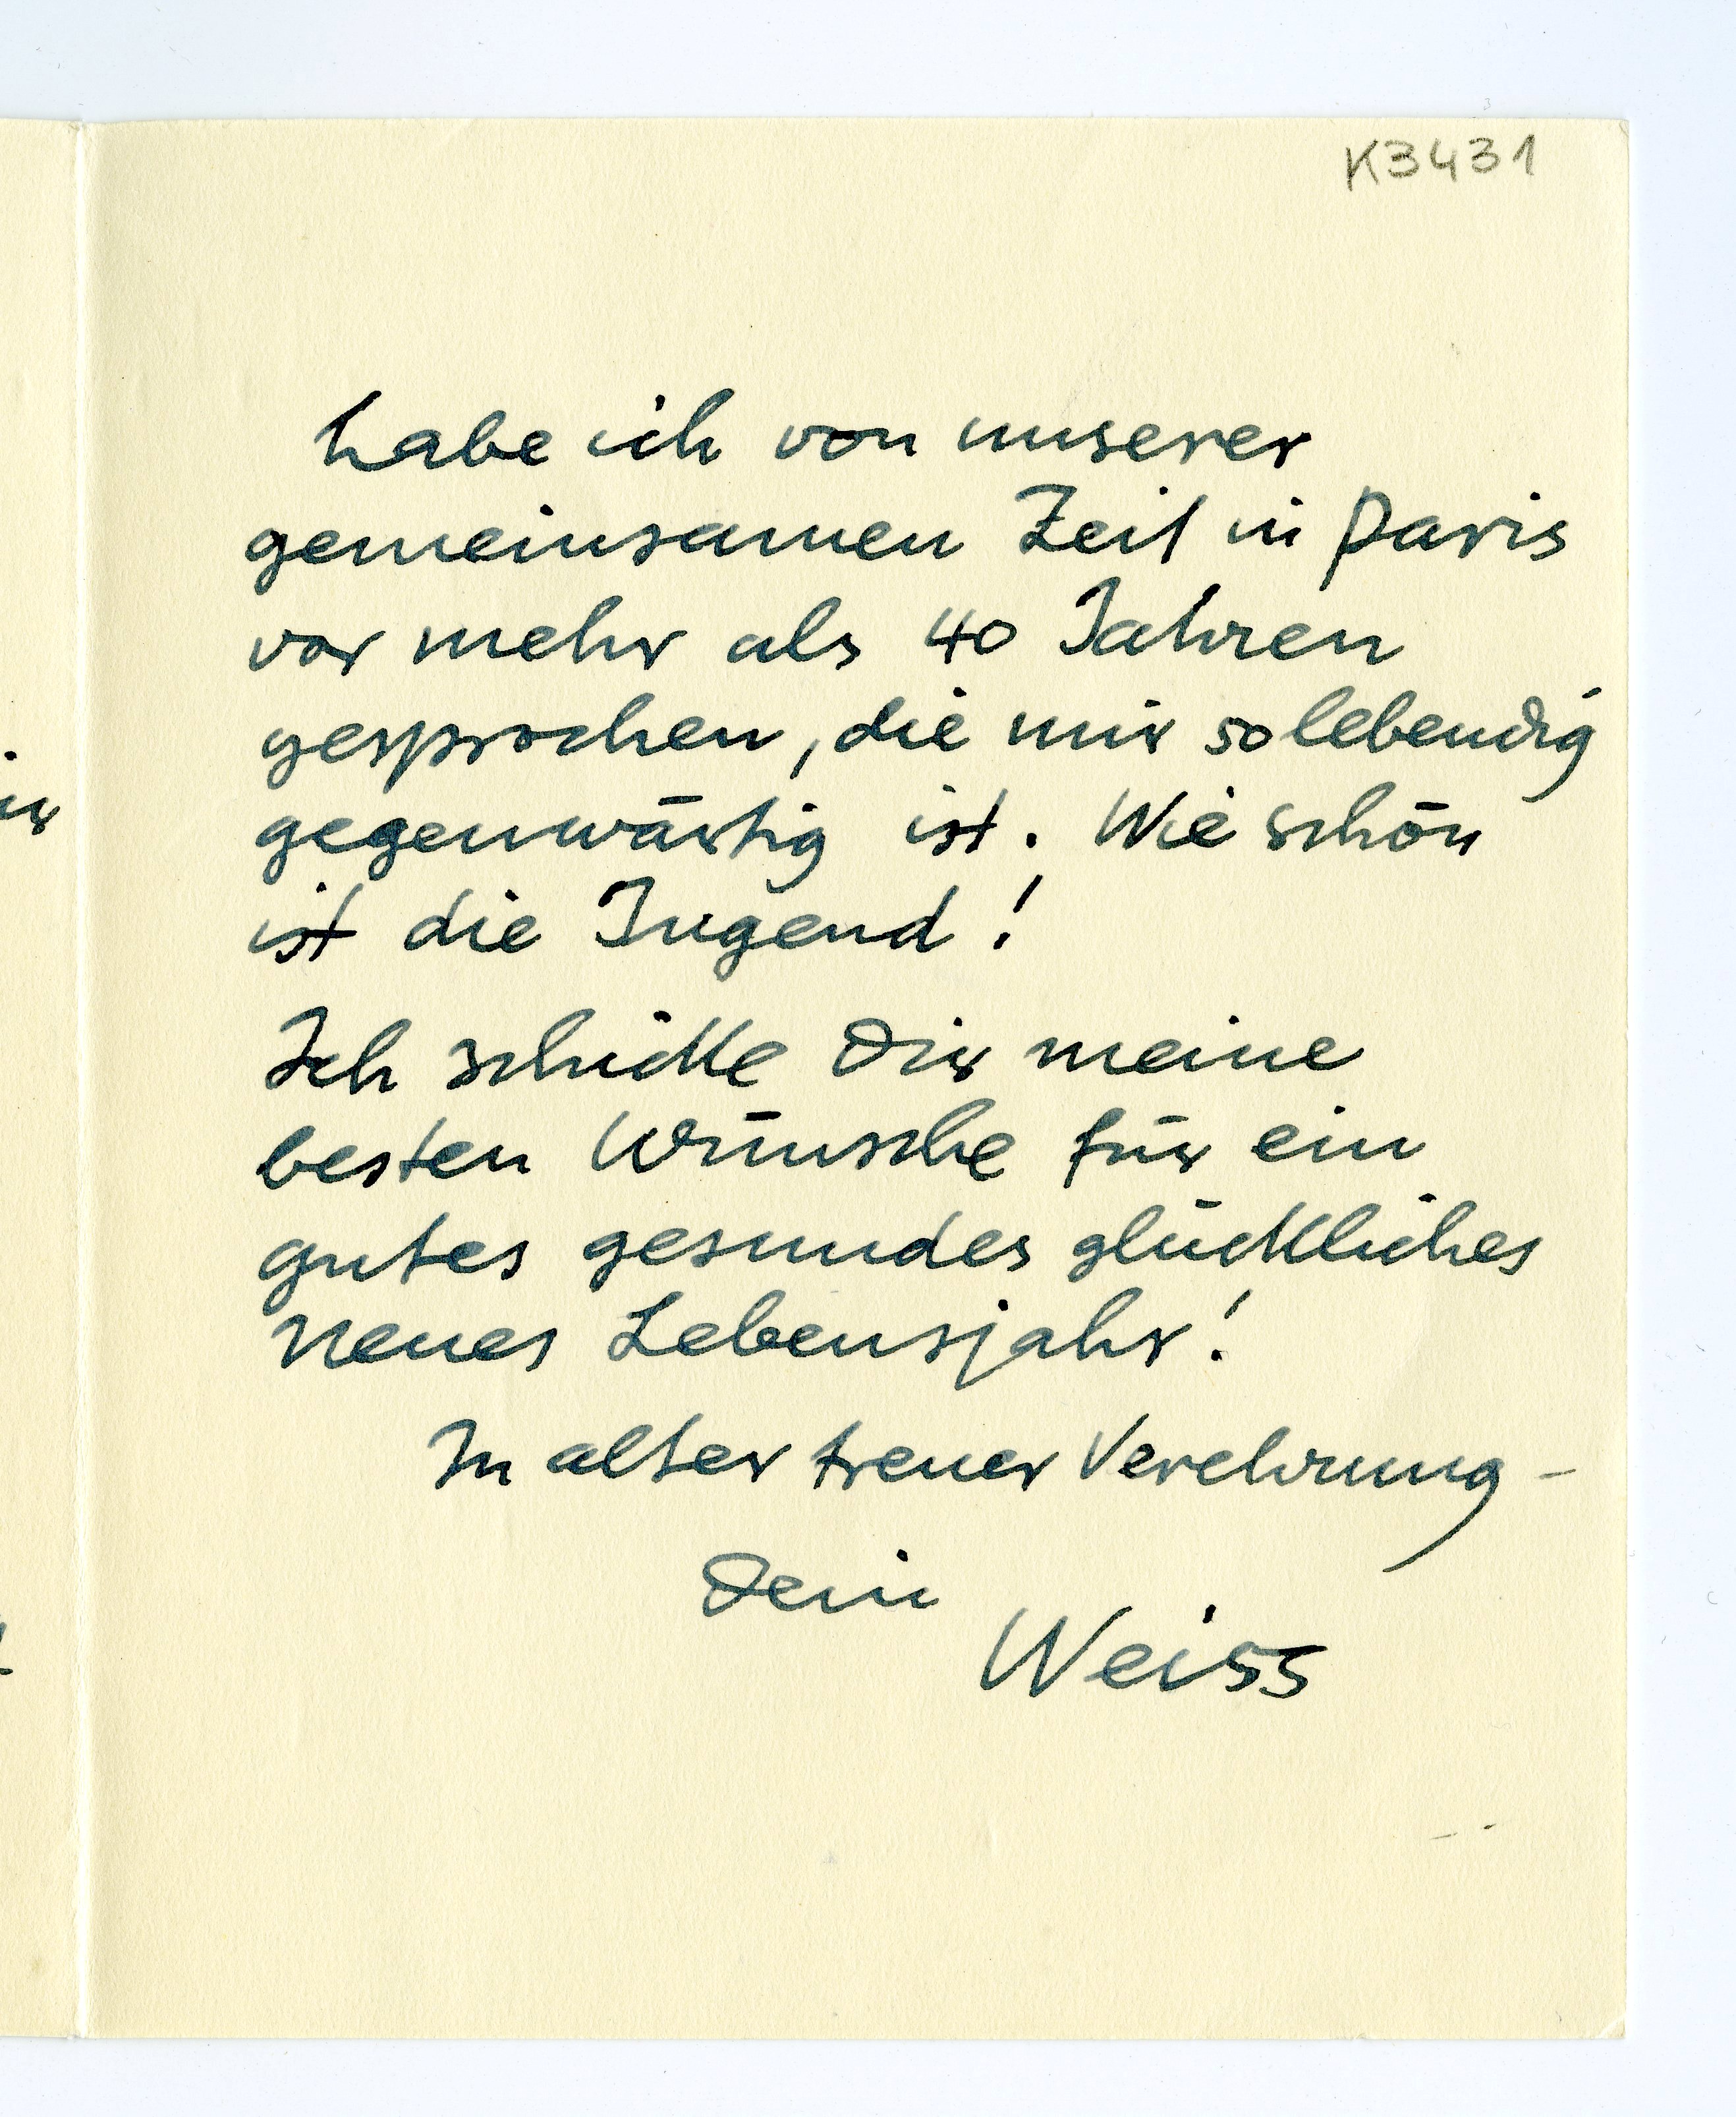 K3431
habe ich von unserer
gemeinsamen Zeit in Paris
vor mehr als 40 Jahren
gesprochen, die mir so lebendig
gegenwärtig ist. Wie schön
ist die Jugend!
Ich schicke Dir meine
besten Wünsche für ein
gutes gesundes glückliches
neues Lebensjahr!
In alter treuer Verehrung –
Dein
Weiss